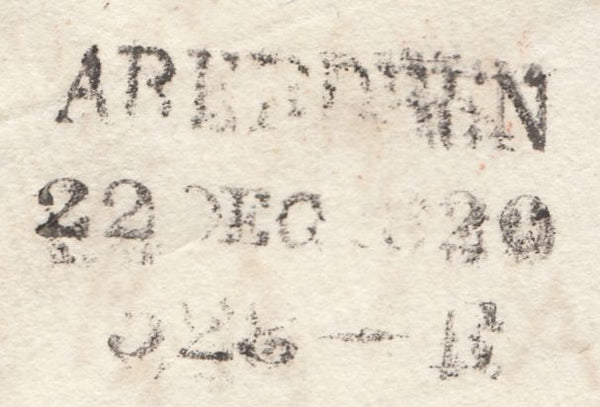 ABERDEEN
22 DEC 1820
526 — E